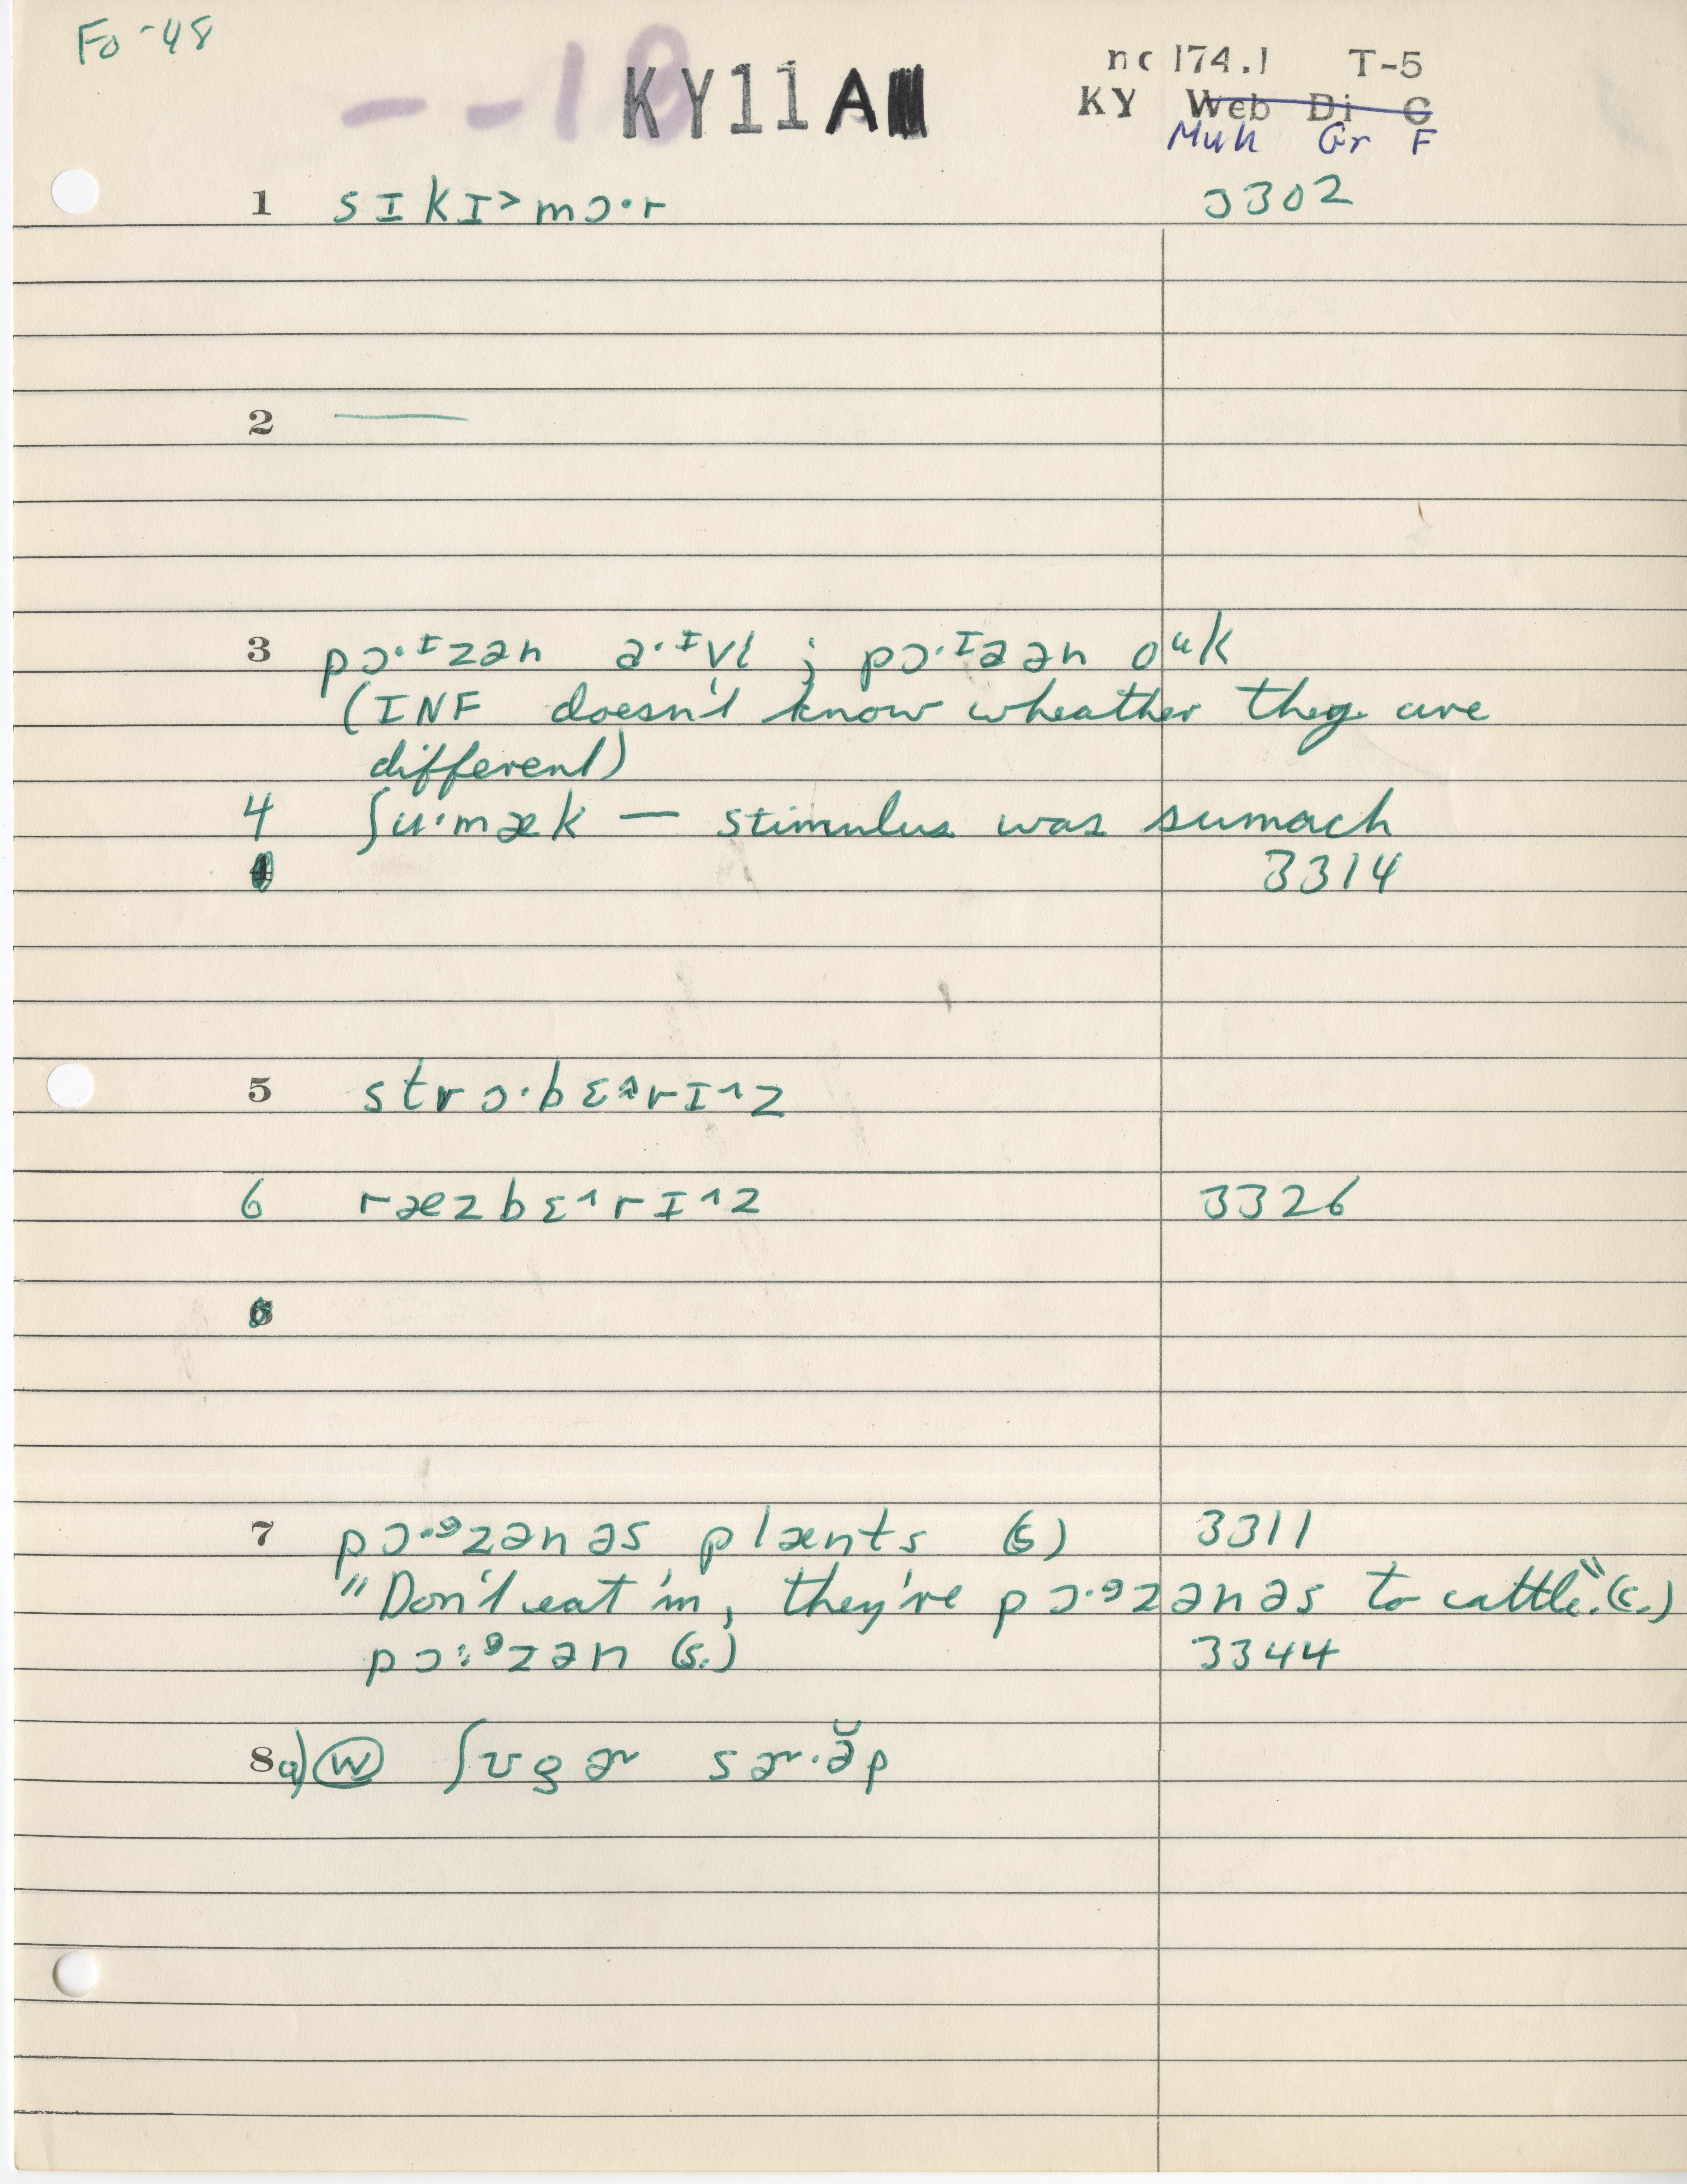 Fo-48
--18 KY11A
nc 174.1 T-5
KY Web Di G
Muh Gr F
1 sɪkɪ˃mɔ·r 3302
2 ——
3 pɔ·ᶦzən a·ᶦvɪ ; pɔ·ᶦzən oᵘk
(INF doesn't know wheather they are
different)
4 ʃu·mæk — stimulus was sumach
4 3314
5 strɔ·bɛ˄rɪ˄z
6 ræzbɛ˄rɪ˄z 3326
6
7 pɔ·ᵊzənəs plænts (s) 3311
"Don't eat 'm, they're pɔ·ᵊzənəs to cattle." (c.)
pɔ:ᵊzən (s.) 3344
8a) W ʃʊgɚ sɚ·ə̆p